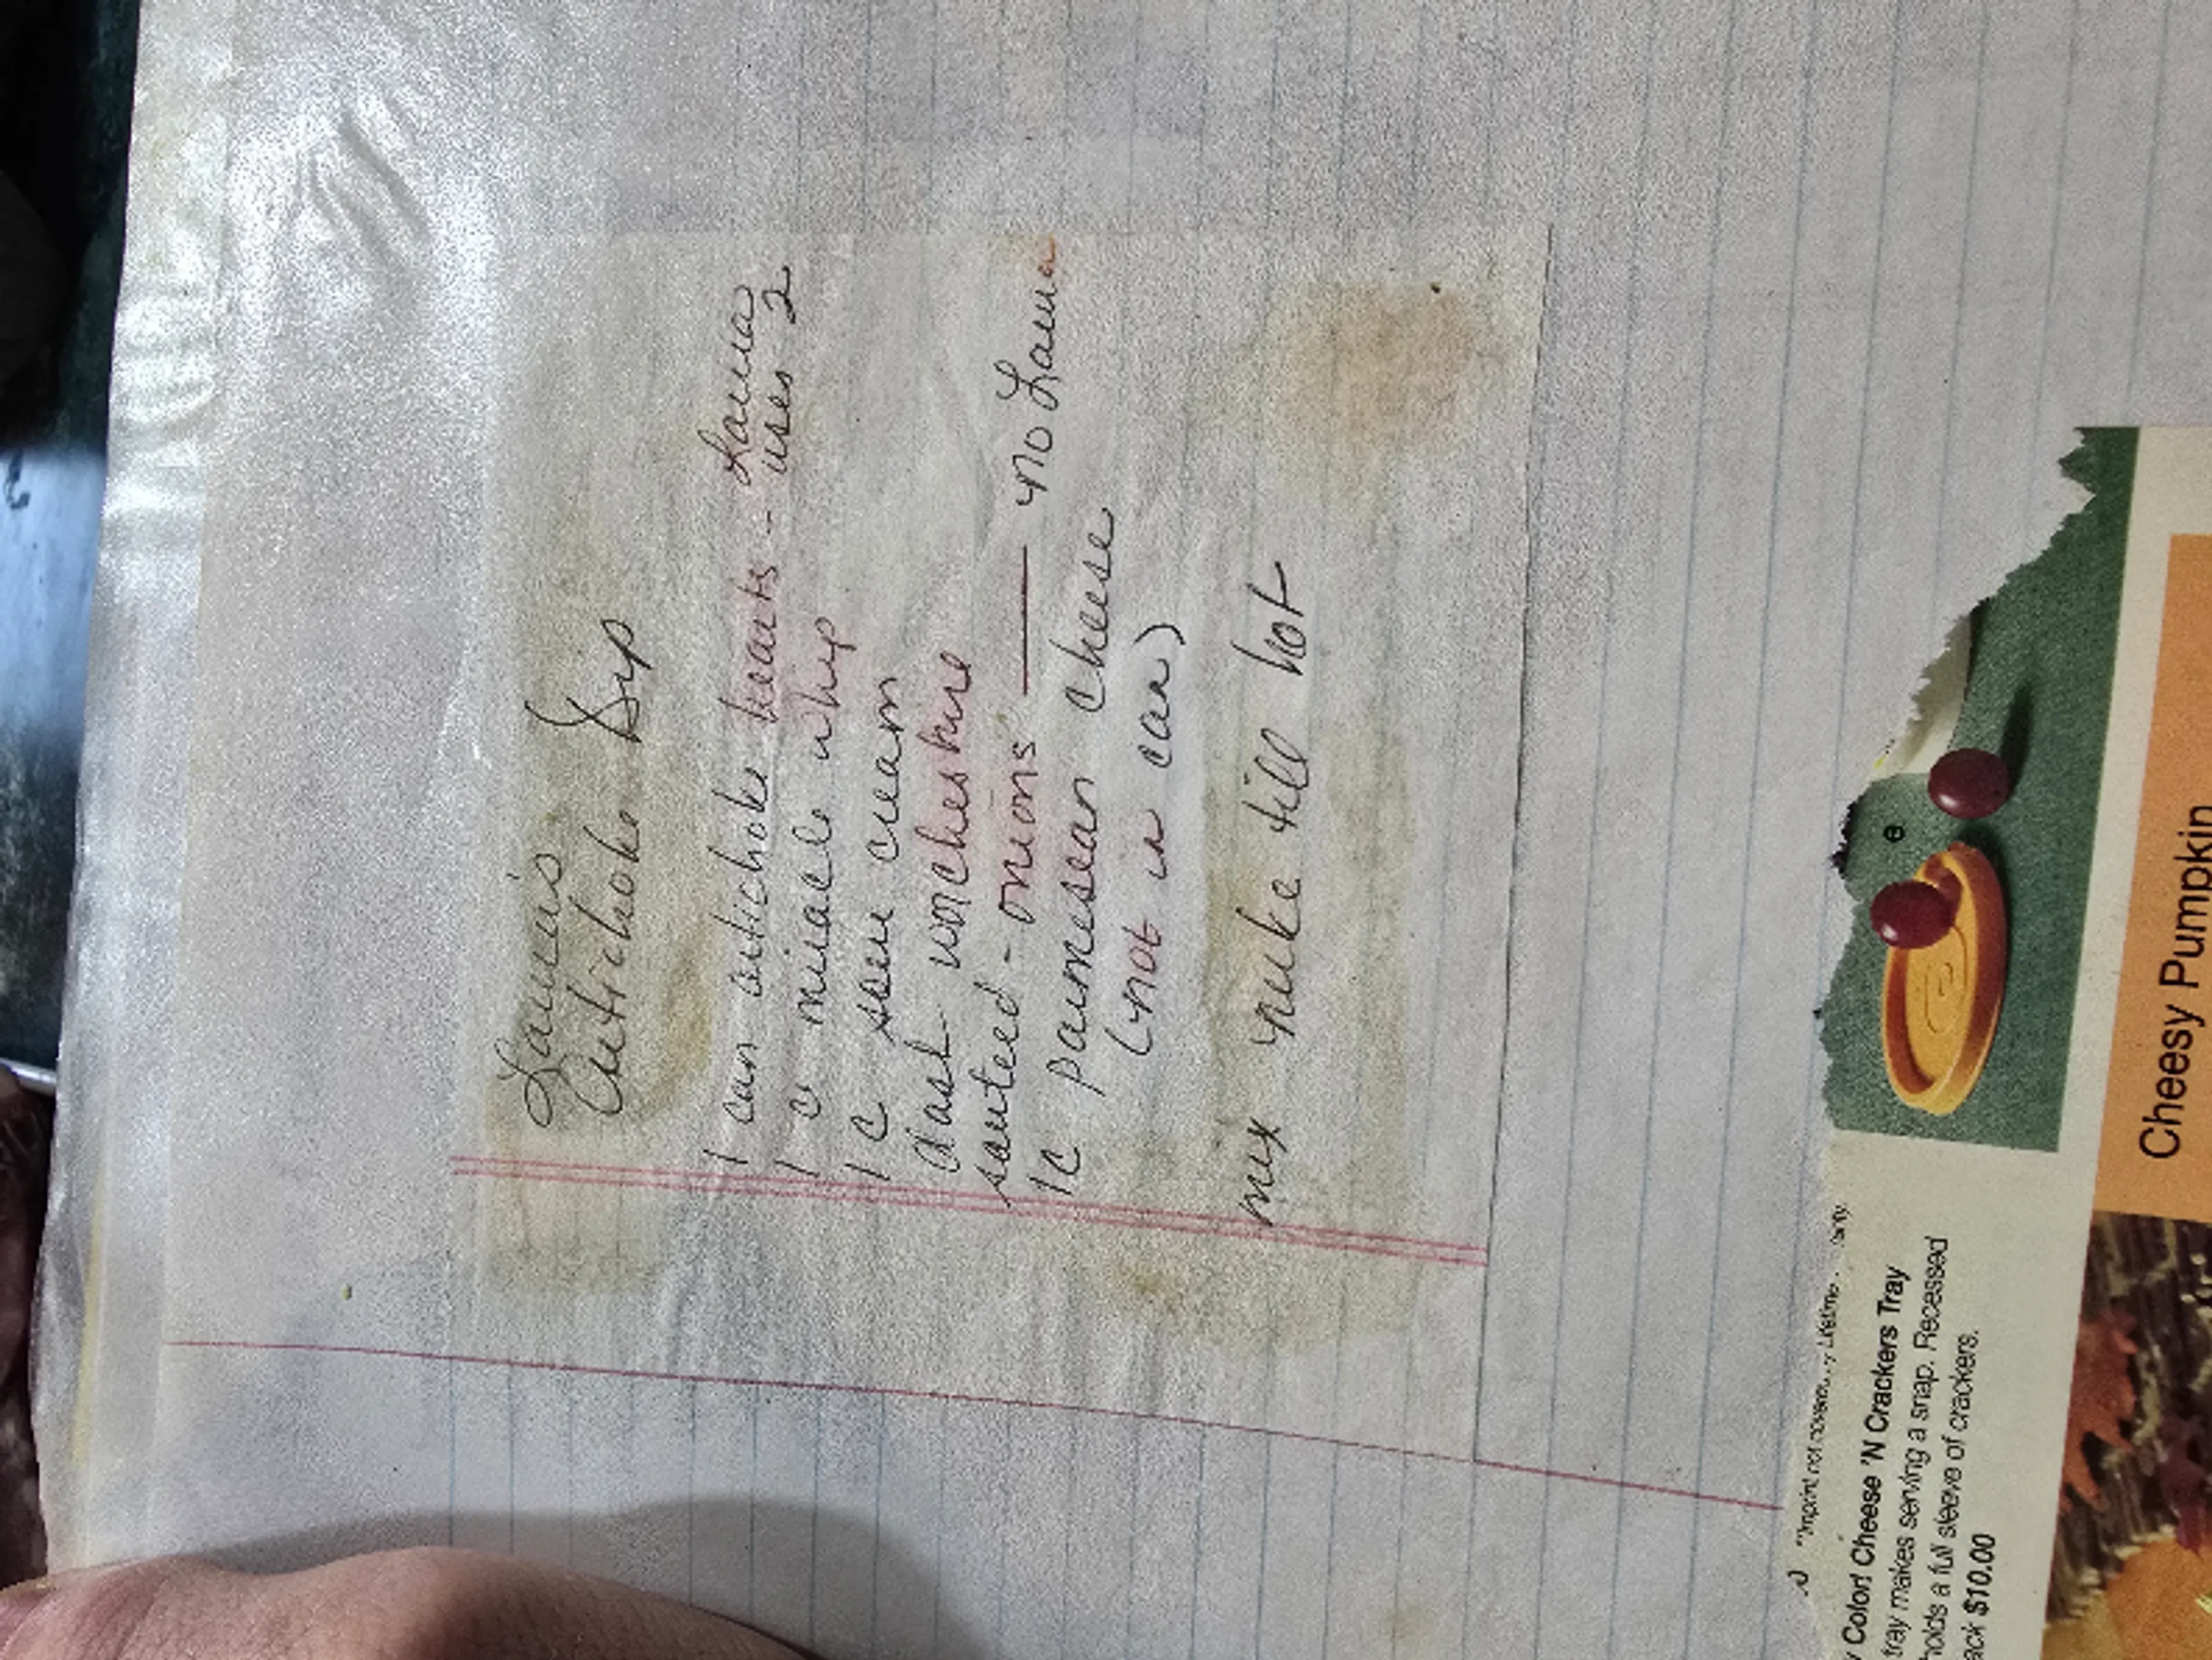 Laura's
Artichoke Dip
1 can artichoke hearts -- Laura
uses 2
1 c miracle whip
1 c sour cream
dash worcheshire
sauteed - onions — no Laura
1c parmesean cheese
(not in can)
mix nuke till hot
"Imprint not covered
Color! Cheese 'N Crackers Tray
tray makes serving a snap. Recessed
holds a full sleeve of crackers.
$10.00
e
Cheesy Pumpkin